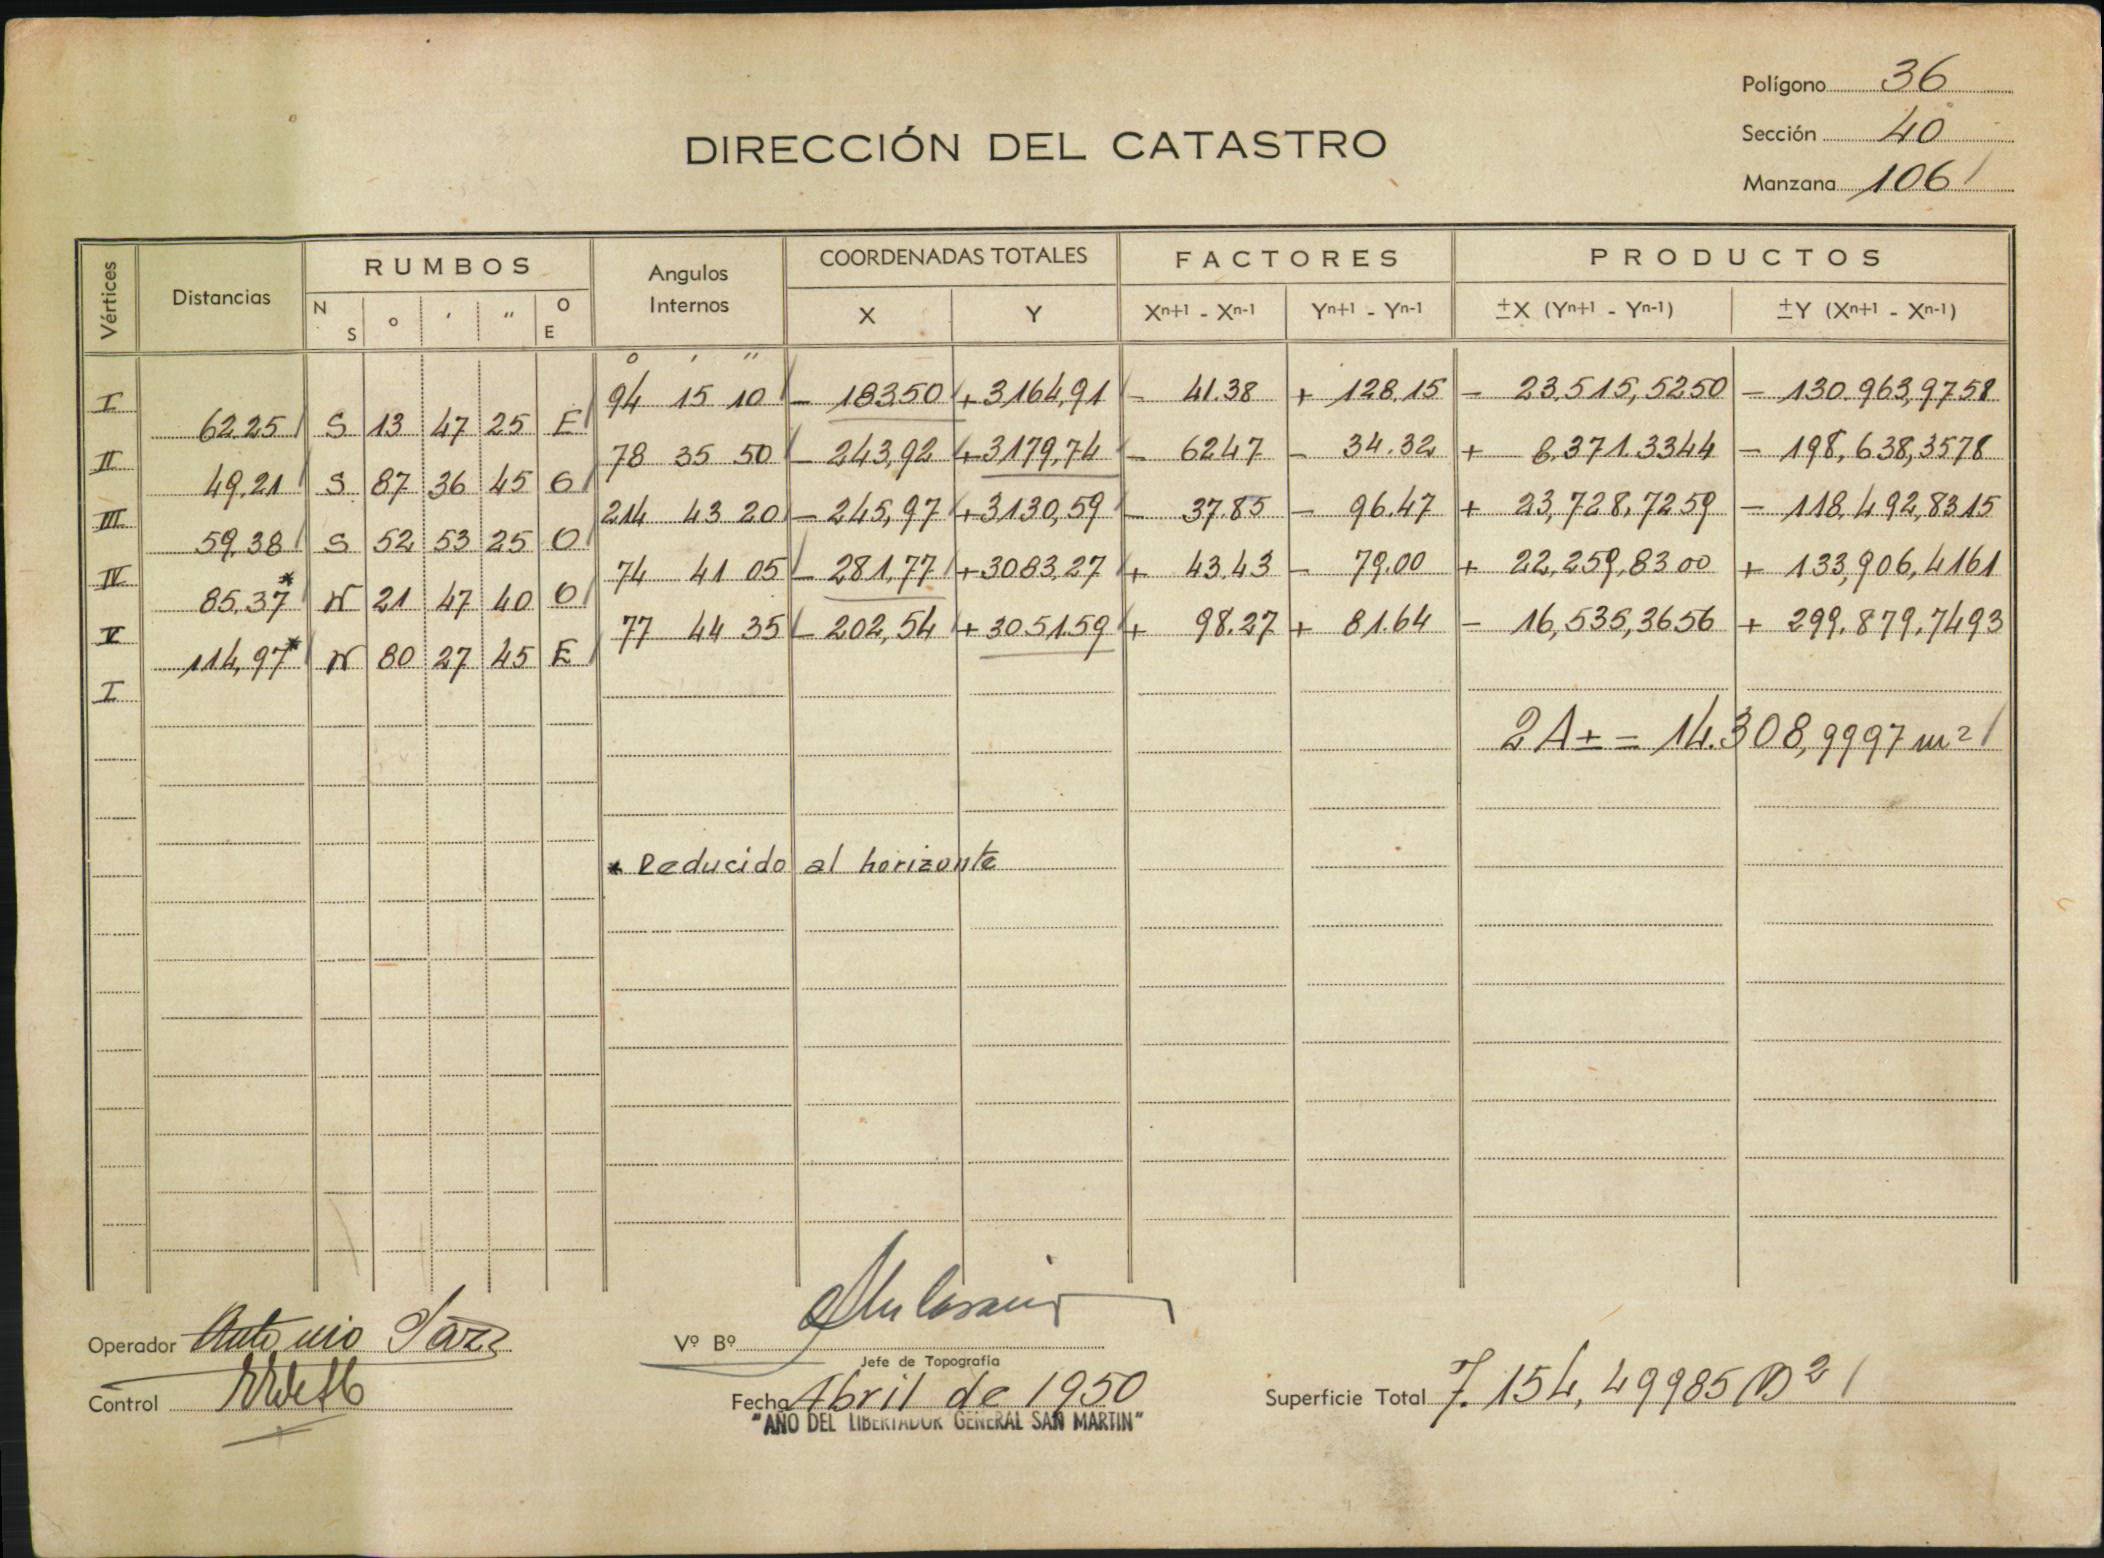 Polígono 36
DIRECCIÓN DEL CATASTRO
Sección 40
Manzana 106
Vértices Distancias RUMBOS Angulos Internos COORDENADAS TOTALES FACTORES PRODUCTOS
N S o ' " O E X Y Xn+1 - Xn-1 Yn+1 - Yn-1 ±X (Yn+1 - Yn-1) ±Y (Xn+1 - Xn-1)
o ' "
I 94 15 10 - 183.50 + 3164,91 - 41.38 + 128.15 - 23.515,5250 - 130.963,9758
62.25 S 13 47 25 E
II 78 35 50 - 243,92 + 3179,74 - 62.47 - 34.32 + 8.371.3344 - 198,638,3578
49.21 S 87 36 45 O
III 214 43 20 - 245,97 + 3130,59 - 37.85 - 96.47 + 23,728,7259 - 118,492,8315
59,38 S 52 53 25 O
IV 74 41 05 - 281,77 + 3083,27 + 43.43 - 79.00 + 22,259,8300 + 133,906,4161
85.37* N 21 47 40 O
V 77 44 35 - 202,54 + 3051.59 + 98.27 + 81.64 - 16,535,3656 + 299.879,7493
114,97* N 80 27 45 E
I
2A ± = 14.308,9997 m2
* Reducido al horizonte
Operador Antonio
Vº Bº
Jefe de Topografía
Control
Fecha Abril de 1950
"AÑO DEL LIBERTADOR GENERAL SAN MARTIN"
Superficie Total 7.154,49985 m2